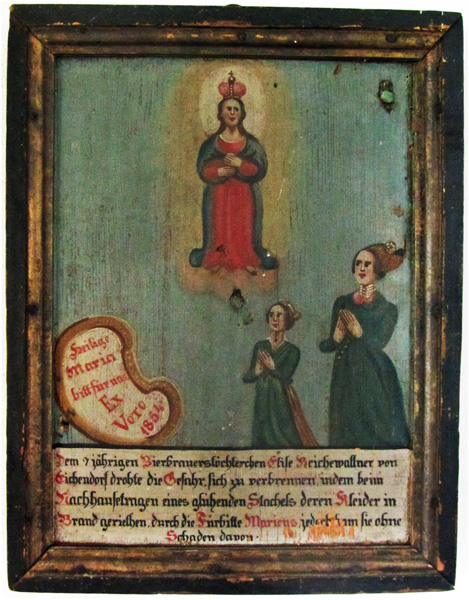 Heilige
Maria
bitt für uns
Ex
Voto
1854
Dem 7 jährigen Bierbrauerstöchterchen Elise Reichewallner von
Eichendorf drohte die Gefahr, sich zu verbrennen, indem beim
Nachhausetragen eines glühenden Stachels deren Kleider in
Brand geriethen, durch die Fürbitte Mariens, sie ohne
Schaden davon.